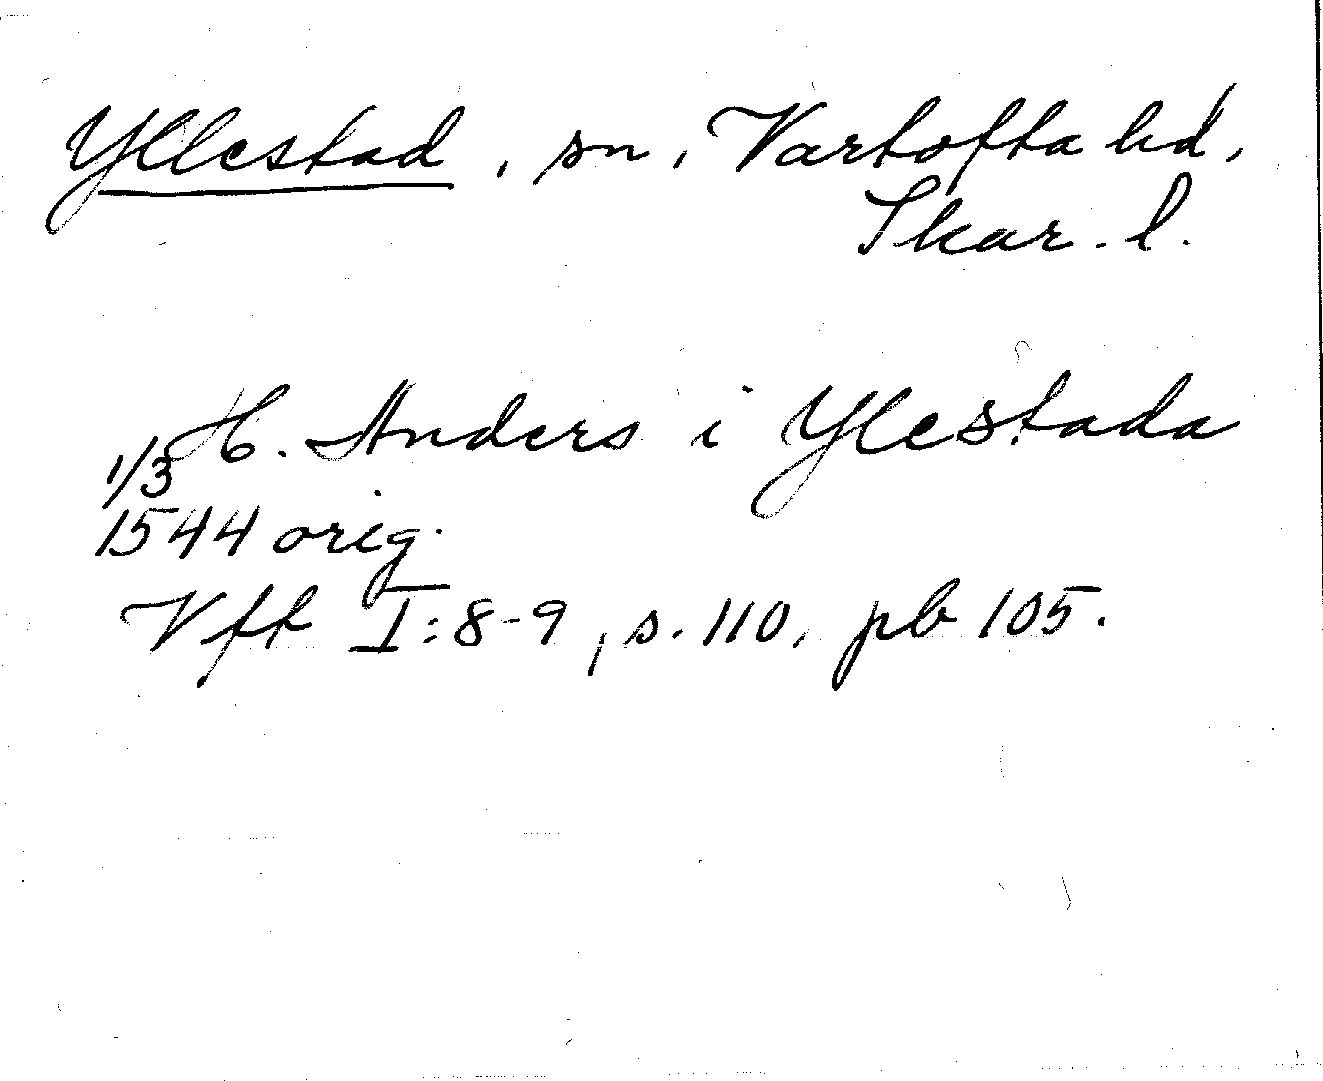 Yllestad, sn, Vartofta hd,
Skar. l.
H. Anders i Ylestada
1/3
1544 orig.
Vft I:8-9, s. 110, pb 105.